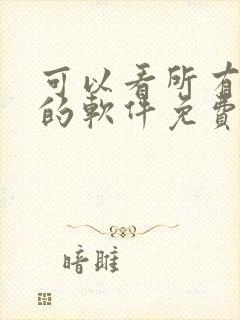 可以看所有
的軟件免費
暗雎